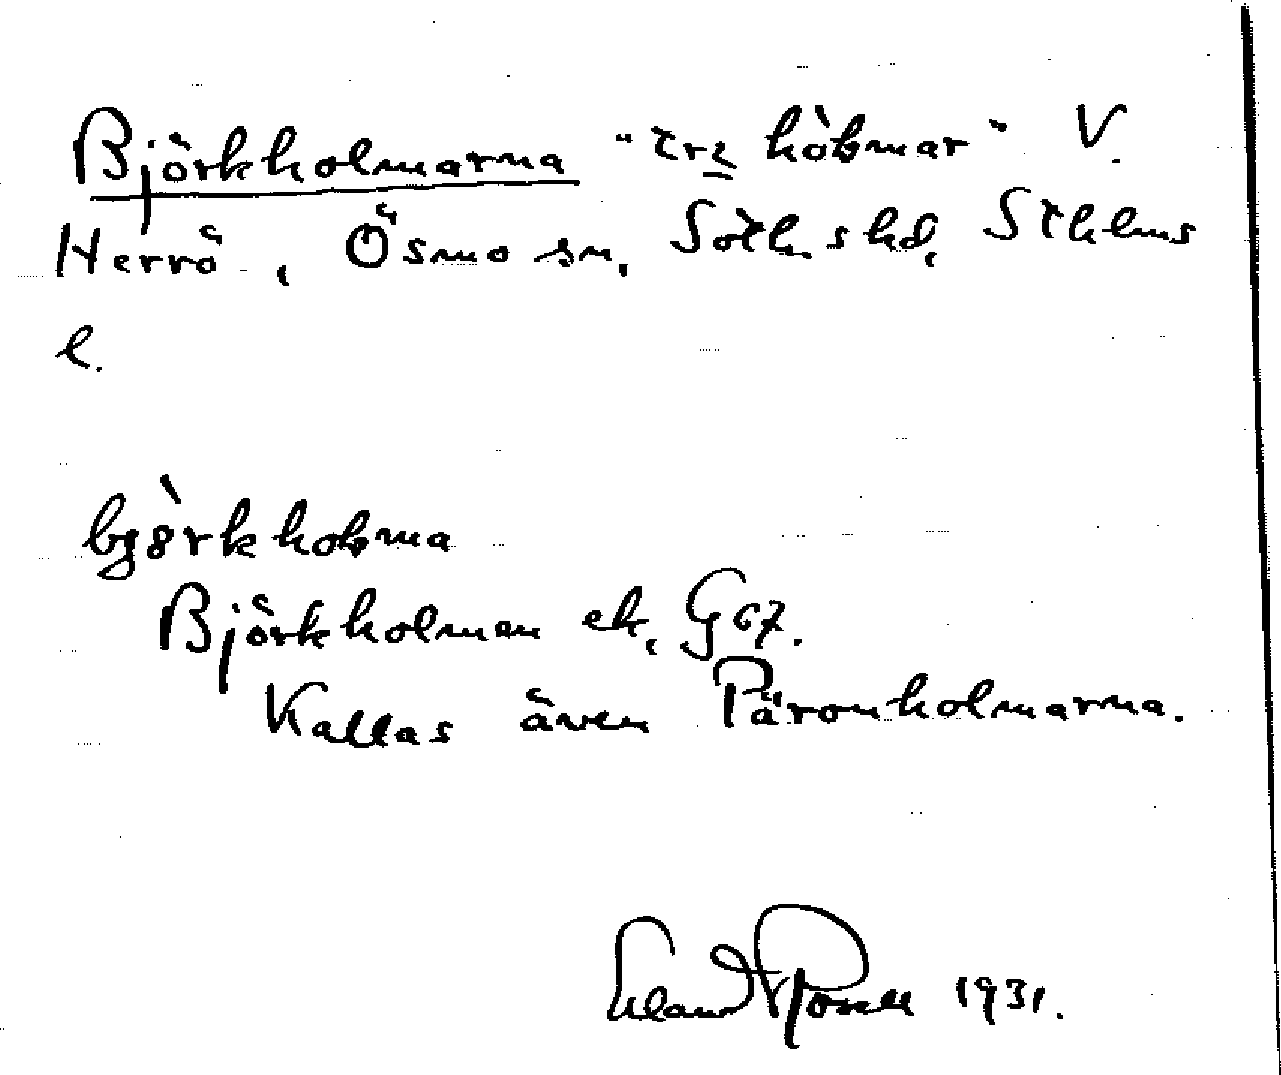 Björkholmarna "trɛ hòɫmar" V.
Herrö, Ösmo sn, Soth. s hd, Sthlms
l.
bjòrkhoɫma
Björkholmen ek, G 67.
Kallas även Päronholmarna.
1931.